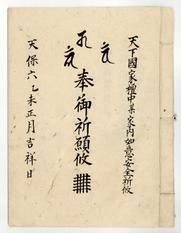 天下國家檀中並家内如意安全祈攸
奉御祈願攸
天保六乙未正月吉祥日